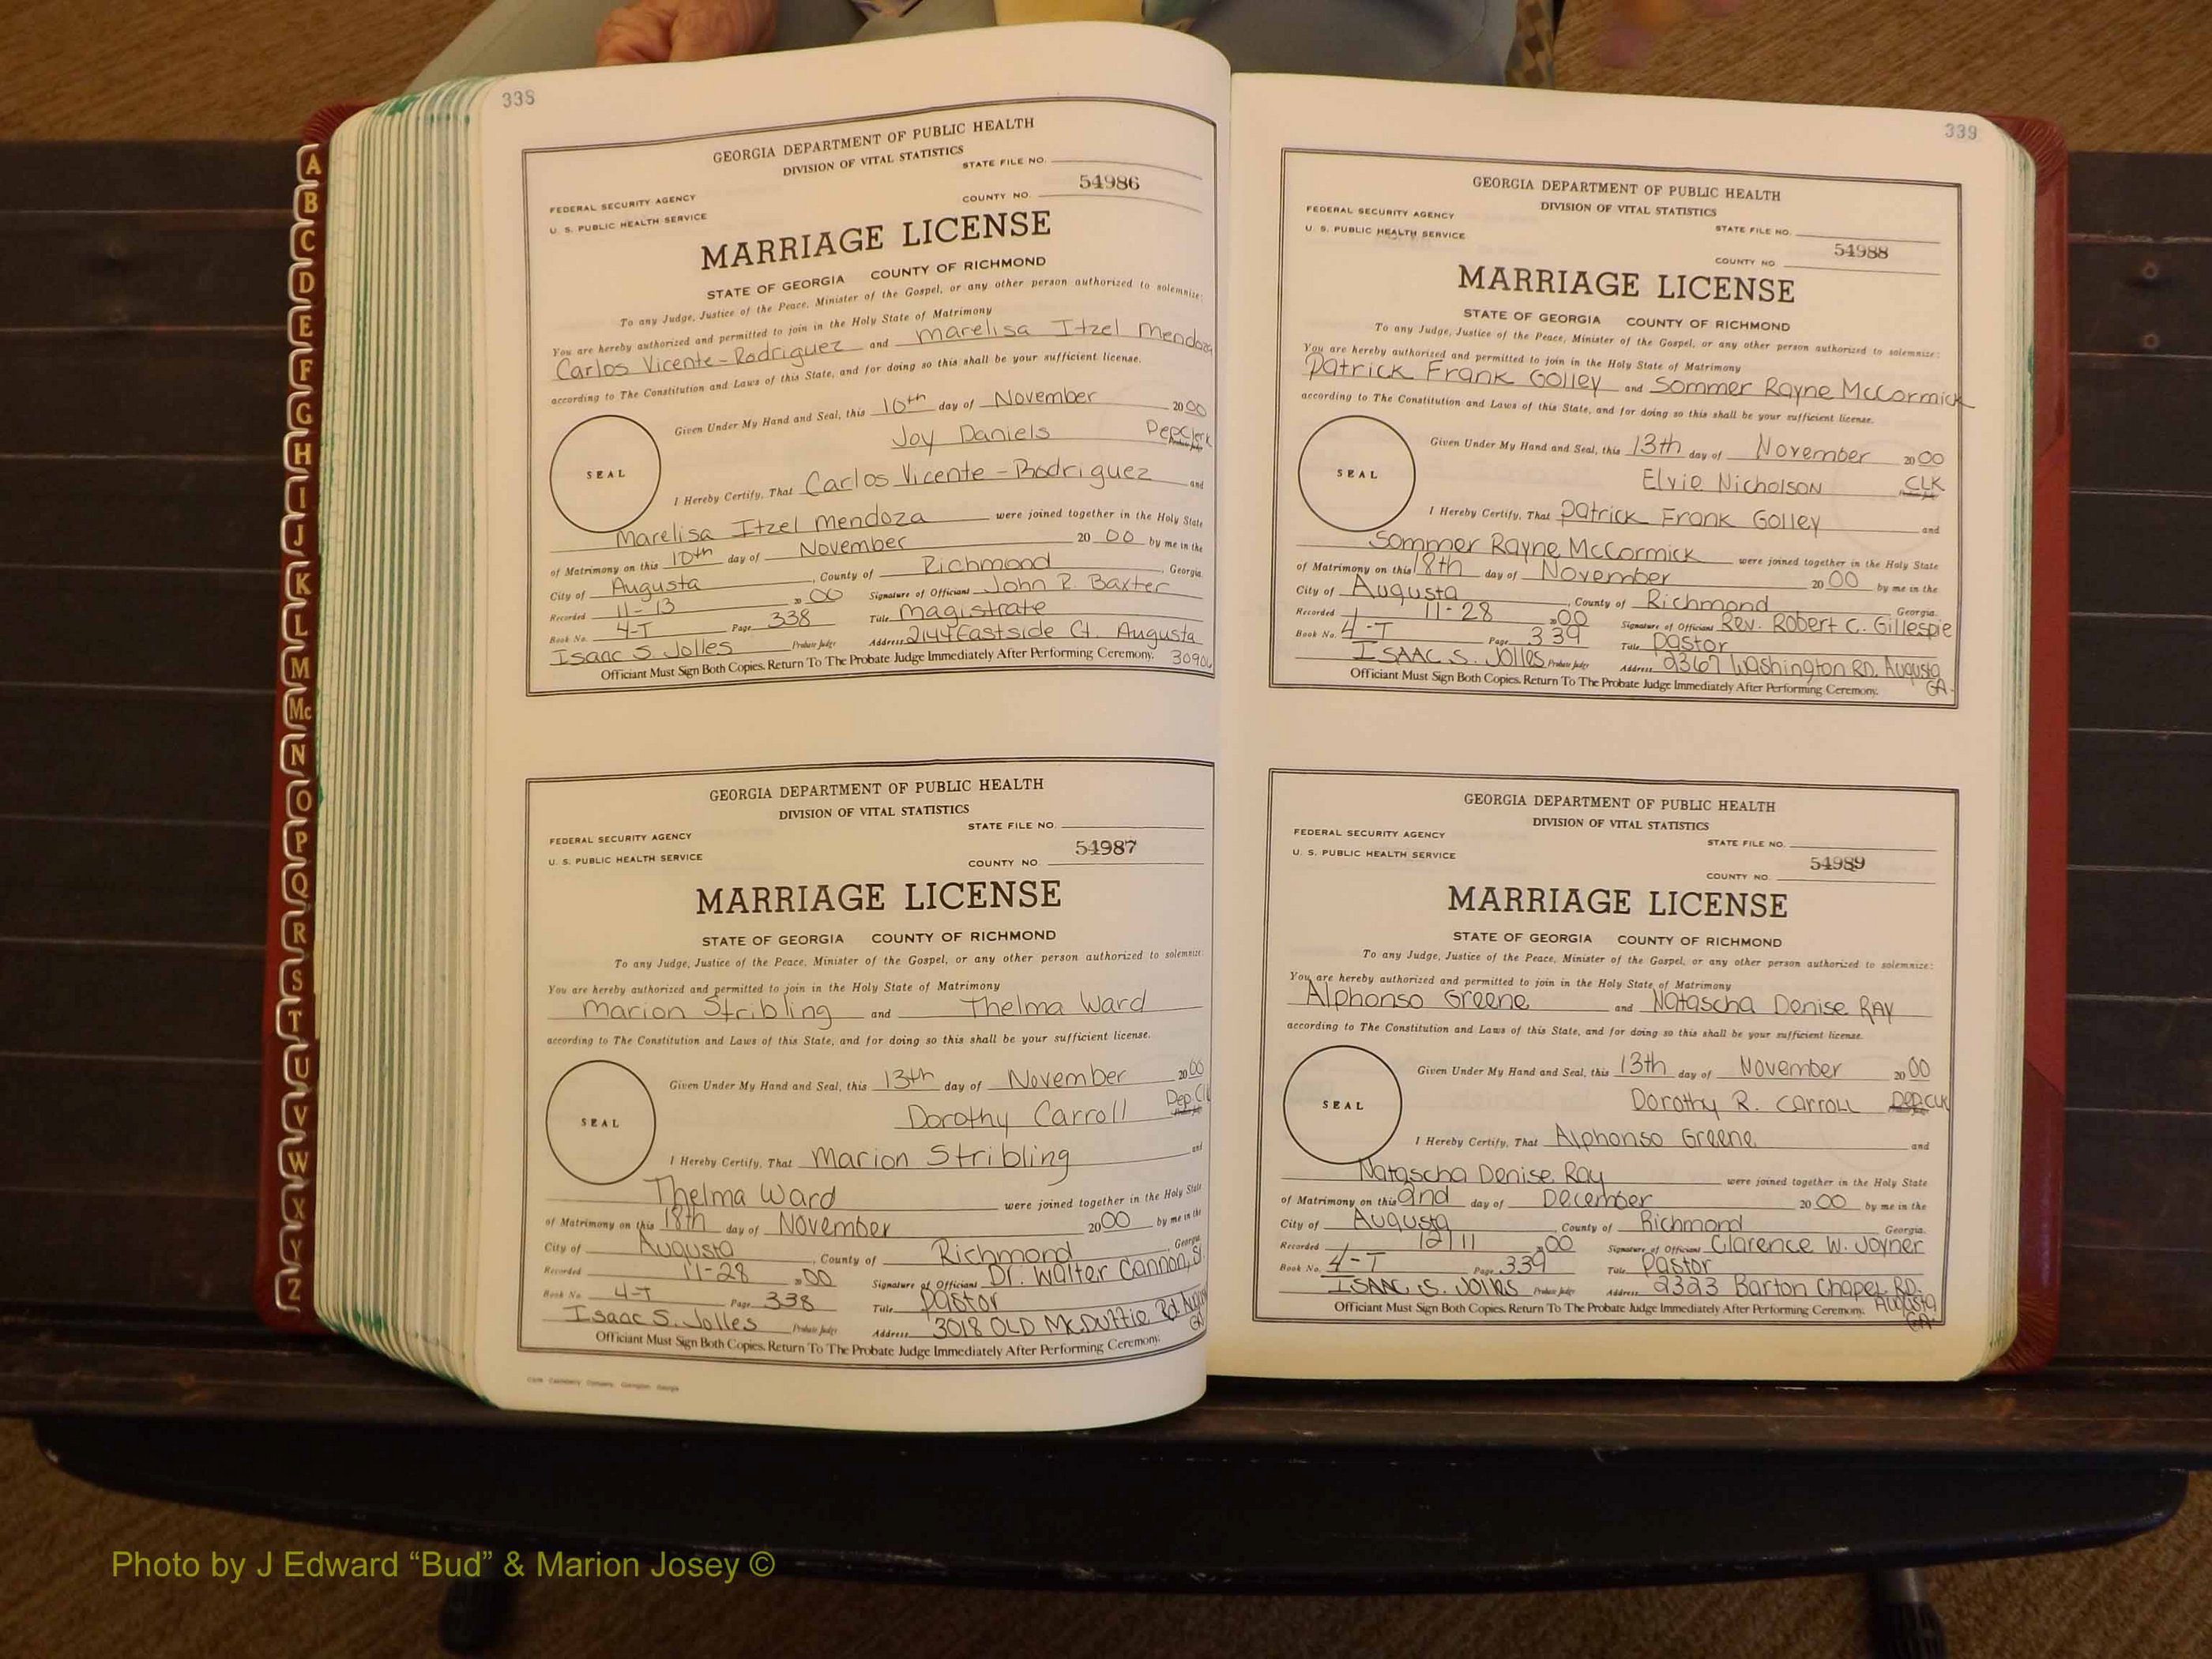 338
GEORGIA DEPARTMENT OF PUBLIC HEALTH
DIVISION OF VITAL STATISTICS
STATE FILE NO.
FEDERAL SECURITY AGENCY
U. S. PUBLIC HEALTH SERVICE
COUNTY NO. 54986
MARRIAGE LICENSE
STATE OF GEORGIA COUNTY OF RICHMOND
To any Judge, Justice of the Peace, Minister of the Gospel, or any other person authorized to solemnize:
You are hereby authorized and permitted to join in the Holy State of Matrimony
Carlos Vicente-Rodriguez and Marelisa Itzel Mendoza
according to The Constitution and Laws of this State, and for doing so this shall be your sufficient license.
Given Under My Hand and Seal, this 10th day of November 2000
Joy Daniels Dep Clerk
SEAL
I Hereby Certify, That Carlos Vicente-Rodriguez and
Marelisa Itzel Mendoza were joined together in the Holy State
of Matrimony on this 10th day of November 20 00 by me in the
City of Augusta, County of Richmond, Georgia.
Recorded 11-13 20 00 Signature of Officiant John R. Baxter
Book No. 4-T Page 338 Title Magistrate
Isaac S. Jolles Probate Judge Address 2144 Eastside Ct. Augusta
Officiant Must Sign Both Copies. Return To The Probate Judge Immediately After Performing Ceremony. 30904
GEORGIA DEPARTMENT OF PUBLIC HEALTH
DIVISION OF VITAL STATISTICS
STATE FILE NO.
FEDERAL SECURITY AGENCY
U. S. PUBLIC HEALTH SERVICE
COUNTY NO. 54987
MARRIAGE LICENSE
STATE OF GEORGIA COUNTY OF RICHMOND
To any Judge, Justice of the Peace, Minister of the Gospel, or any other person authorized to solemnize:
You are hereby authorized and permitted to join in the Holy State of Matrimony
Marion Stribling and Thelma Ward
according to The Constitution and Laws of this State, and for doing so this shall be your sufficient license.
Given Under My Hand and Seal, this 13th day of November 2000
Dorothy Carroll Dep. Clk
SEAL
I Hereby Certify, That Marion Stribling and
Thelma Ward were joined together in the Holy State
of Matrimony on this 18th day of November 2000 by me in the
City of Augusta, County of Richmond, Georgia.
Recorded 11-28 20 00 Signature of Officiant Dr. Walter Cannon, Sr.
Book No. 4-T Page 338 Title Pastor
Isaac S. Jolles Probate Judge Address 3018 OLD McDuffie Rd Augusta GA
Officiant Must Sign Both Copies. Return To The Probate Judge Immediately After Performing Ceremony.
339
GEORGIA DEPARTMENT OF PUBLIC HEALTH
DIVISION OF VITAL STATISTICS
FEDERAL SECURITY AGENCY
U. S. PUBLIC HEALTH SERVICE
STATE FILE NO.
COUNTY NO. 54988
MARRIAGE LICENSE
STATE OF GEORGIA COUNTY OF RICHMOND
To any Judge, Justice of the Peace, Minister of the Gospel, or any other person authorized to solemnize:
You are hereby authorized and permitted to join in the Holy State of Matrimony
Patrick Frank Golley and Sommer Rayne McCormick
according to The Constitution and Laws of this State, and for doing so this shall be your sufficient license.
Given Under My Hand and Seal, this 13th day of November 2000
Elvie Nicholson CLK
SEAL
I Hereby Certify, That Patrick Frank Golley and
Sommer Rayne McCormick were joined together in the Holy State
of Matrimony on this 18th day of November 20 00 by me in the
City of Augusta, County of Richmond Georgia.
Recorded 11-28 20 00 Signature of Officiant Rev. Robert C. Gillespie
Book No. 4-T Page 339 Title Pastor
ISAAC S. JOlles Probate Judge Address 2367 Washington RD. Augusta GA.
Officiant Must Sign Both Copies. Return To The Probate Judge Immediately After Performing Ceremony.
GEORGIA DEPARTMENT OF PUBLIC HEALTH
DIVISION OF VITAL STATISTICS
FEDERAL SECURITY AGENCY
U. S. PUBLIC HEALTH SERVICE
STATE FILE NO.
COUNTY NO. 54989
MARRIAGE LICENSE
STATE OF GEORGIA COUNTY OF RICHMOND
To any Judge, Justice of the Peace, Minister of the Gospel, or any other person authorized to solemnize:
You are hereby authorized and permitted to join in the Holy State of Matrimony
Alphonso Greene and Natascha Denise RAY
according to The Constitution and Laws of this State, and for doing so this shall be your sufficient license.
Given Under My Hand and Seal, this 13th day of November 2000
Dorothy R. Carroll Dep. CLK
SEAL
I Hereby Certify, That Alphonso Greene and
Natascha Denise Ray were joined together in the Holy State
of Matrimony on this 2nd day of December 20 00 by me in the
City of Augusta, County of Richmond Georgia.
Recorded 12/11 20 00 Signature of Officiant Clarence W. Joyner
Book No. 4-T Page 339 Title Pastor
ISAAC S. Jolles Probate Judge Address 2323 Barton Chapel RD. Augusta GA.
Officiant Must Sign Both Copies. Return To The Probate Judge Immediately After Performing Ceremony.
A
B
C
D
E
F
G
H
I
J
K
L
M
Mc
N
O
P
Q
R
S
T
U
V
W
X
Y
Z
Photo by J Edward “Bud” & Marion Josey ©